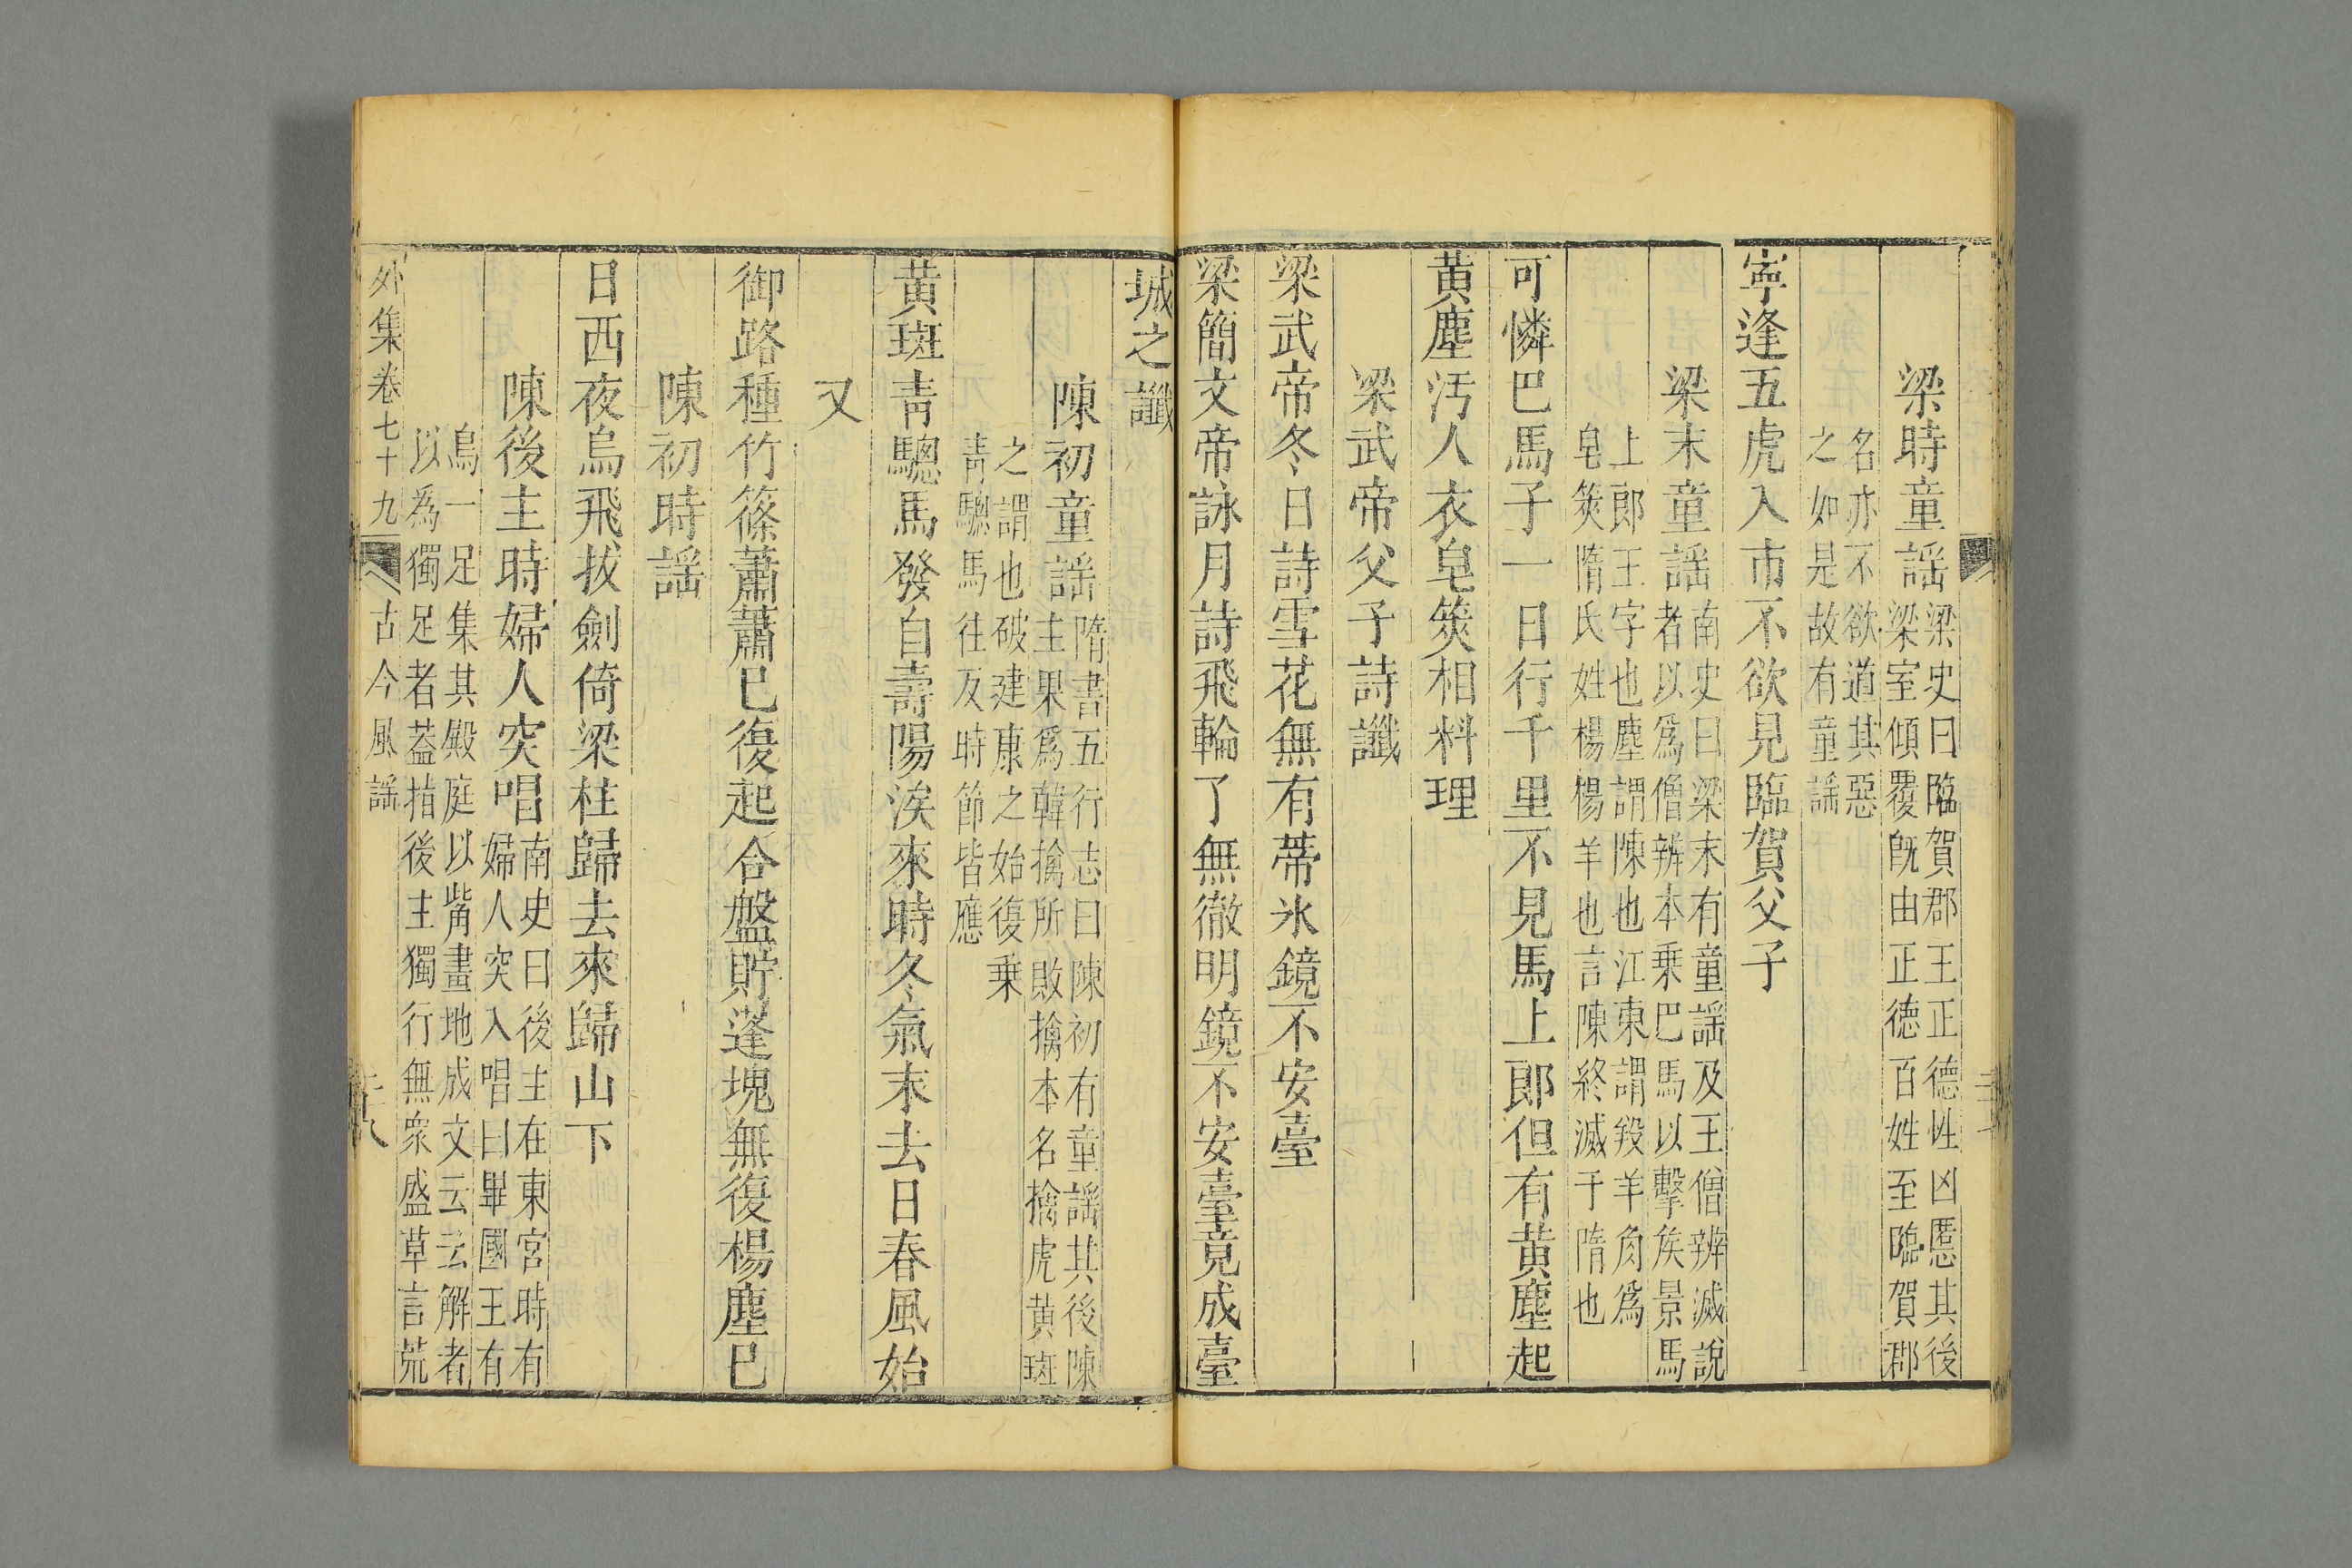 梁時童謡梁史曰臨賀郡王正德性凶慝其後
梁室傾覆既由正徳百姓至臨賀郡
名亦不欲道其惡
之如是故有童謡
寧逢五虎入市不欲見臨賀父子
梁末童謡南史曰梁末有童謡及王僧辨滅說
者以爲僧辨本乗巴馬以擊矦景馬
上郎王字也塵謂陳也江東謂羖羊角爲
皂筴隋氏姓楊楊羊也言陳終滅于隋也
可憐巴馬子一日行千里不見馬上郎但有黄塵起
黄塵汚人衣皂筴相料理
梁武帝父子詩讖
梁武帝冬日詩雪花無有蒂氷鏡不安臺
梁簡文帝詠月詩飛輪了無徹明鏡不安臺竟成臺
城之讖
陳初童謡隋書五行志曰陳初有童謡其後陳
主果爲韓擒所敗擒本名擒虎黄斑
之謂也破建康之始復乗
青驄馬往反時節皆應
黄斑青驄馬發自壽陽涘來時冬氣末去日春風始
又
御路種竹篠蕭蕭已復起合盤貯蓬塊無復楊塵已
陳初時謡
日西夜烏飛拔劍倚梁柱歸去來歸山下
陳後主時婦人突唱南史曰後主在東宮時有
婦人突入唱曰畢國王有
烏一足集其殿庭以觜畫地成文云云解者
以為獨足者葢指後主獨行無衆盛草言荒
外集卷七十九 古今風謡